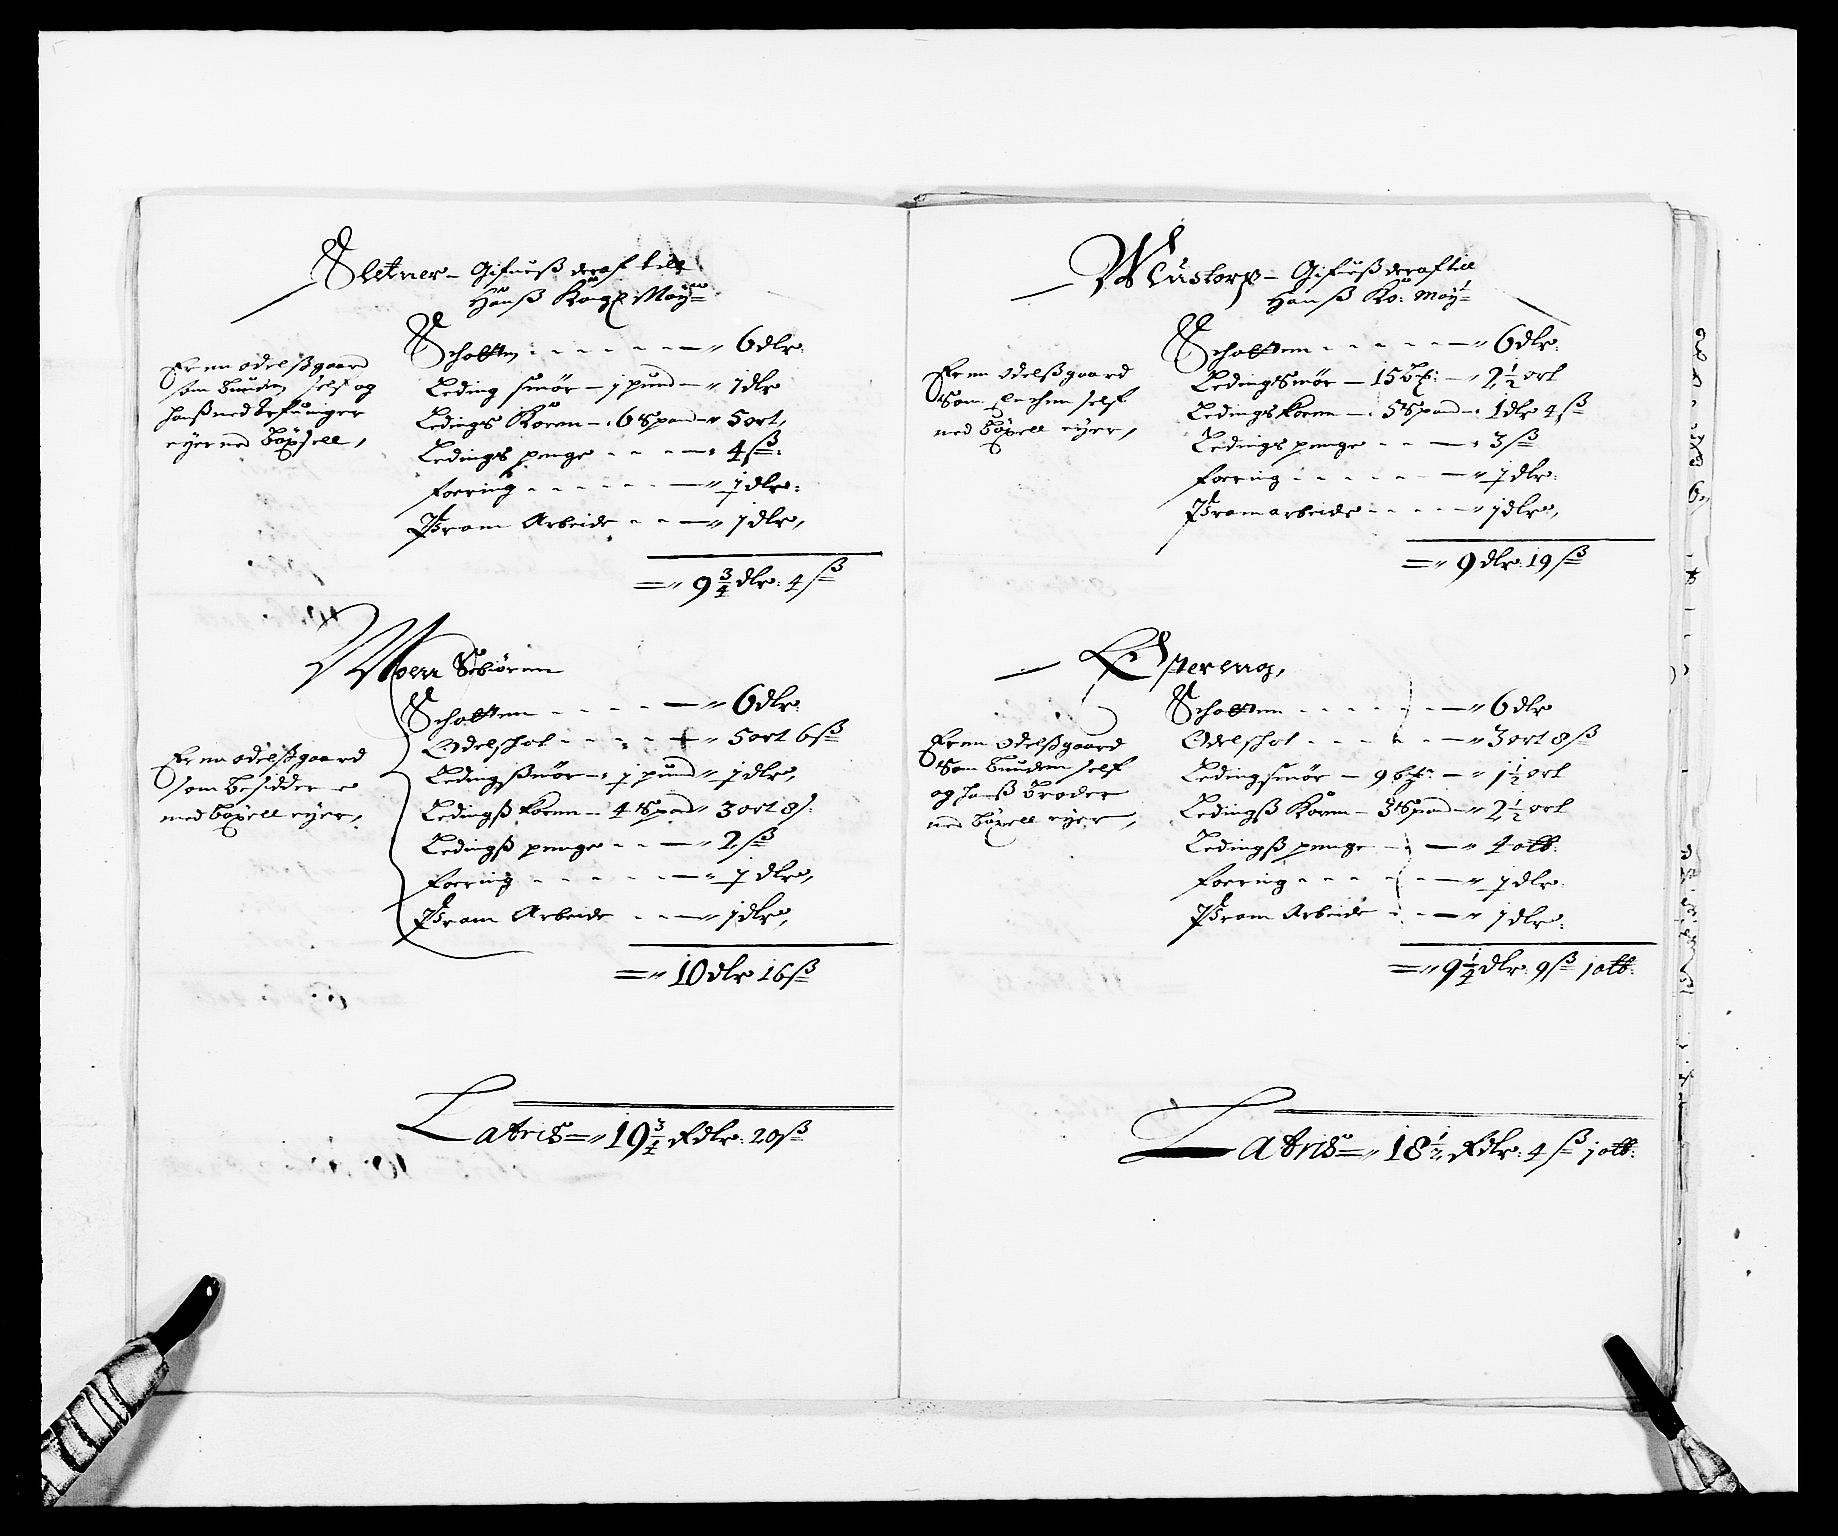 Sletner – Gifueß deraf till
Hanß Kongl. May:
Er en odelßgaard
som bunden self og
hanß med arfuinger
eyer med böxsell,
Schatten – – – – – " 6 dlr:
Leding smör – 1 pund – " 1 dlr
Ledings Koren – 6 Spand – " 5 ort,
Ledings penge – – – 4 ß:
foering – – – – " 1 dlr:
Pram Arbeide – – – " 1 dlr,
= " 9 3/4 dlr: 4 ß
Moen Sebiörnn
Er en odelßgaard
som besidderne
med böxell eyer,
Schatten – – – – " 6 dlr
Odelschat – – – " 5 ort 6 ß
Ledingßmör – 1 pund " 1 dlr,
Ledingß koren – 4 Spand " 3 ort 8 ß
Ledingß penge – – – " 2 ß
foering – – – – " 1 dlr,
Pram Arbeide – – – " 1 dlr,
= " 10 dlr 16 ß
Lateris = " 19 3/4 Rdlr: 20 ß
Klustorp – Gifueß deraf till
Hanß Ko: May:
Er en odelßgaard
Som self
med böxell eyer,
Schatten – – – – " 6 dlr:
Ledingsmör – 15 – " 2 1/2 ort
Ledings koren – 5 Spand – 1 dlr 4 ß
Ledings penge – – – 3 ß
foering – – – – " 1 dlr:
Pram arbeide – – – – " 1 dlr,
= " 9 dlr: 19 ß
Östereng,
Er en odelßgaard
Som bunden self
og hanß broder
med böxell eyer,
Schatten – – – – " 6 dlr
Odelschat – – – – " 3 ort 8 ß
Ledingsmör – 9 – " 1 1/2 ort
Ledingß Koren – 3 Spand – " 2 1/2 ort
Ledingß penge – – " 4 alb:
foering – – – – " 1 dlr:
Pram Arbeide – – " 1 dlr:
= " 9 1/2 dlr: 9 ß 1 alb:
Lateris = " 18 1/2 Rdlr: 4 ß 1 alb: